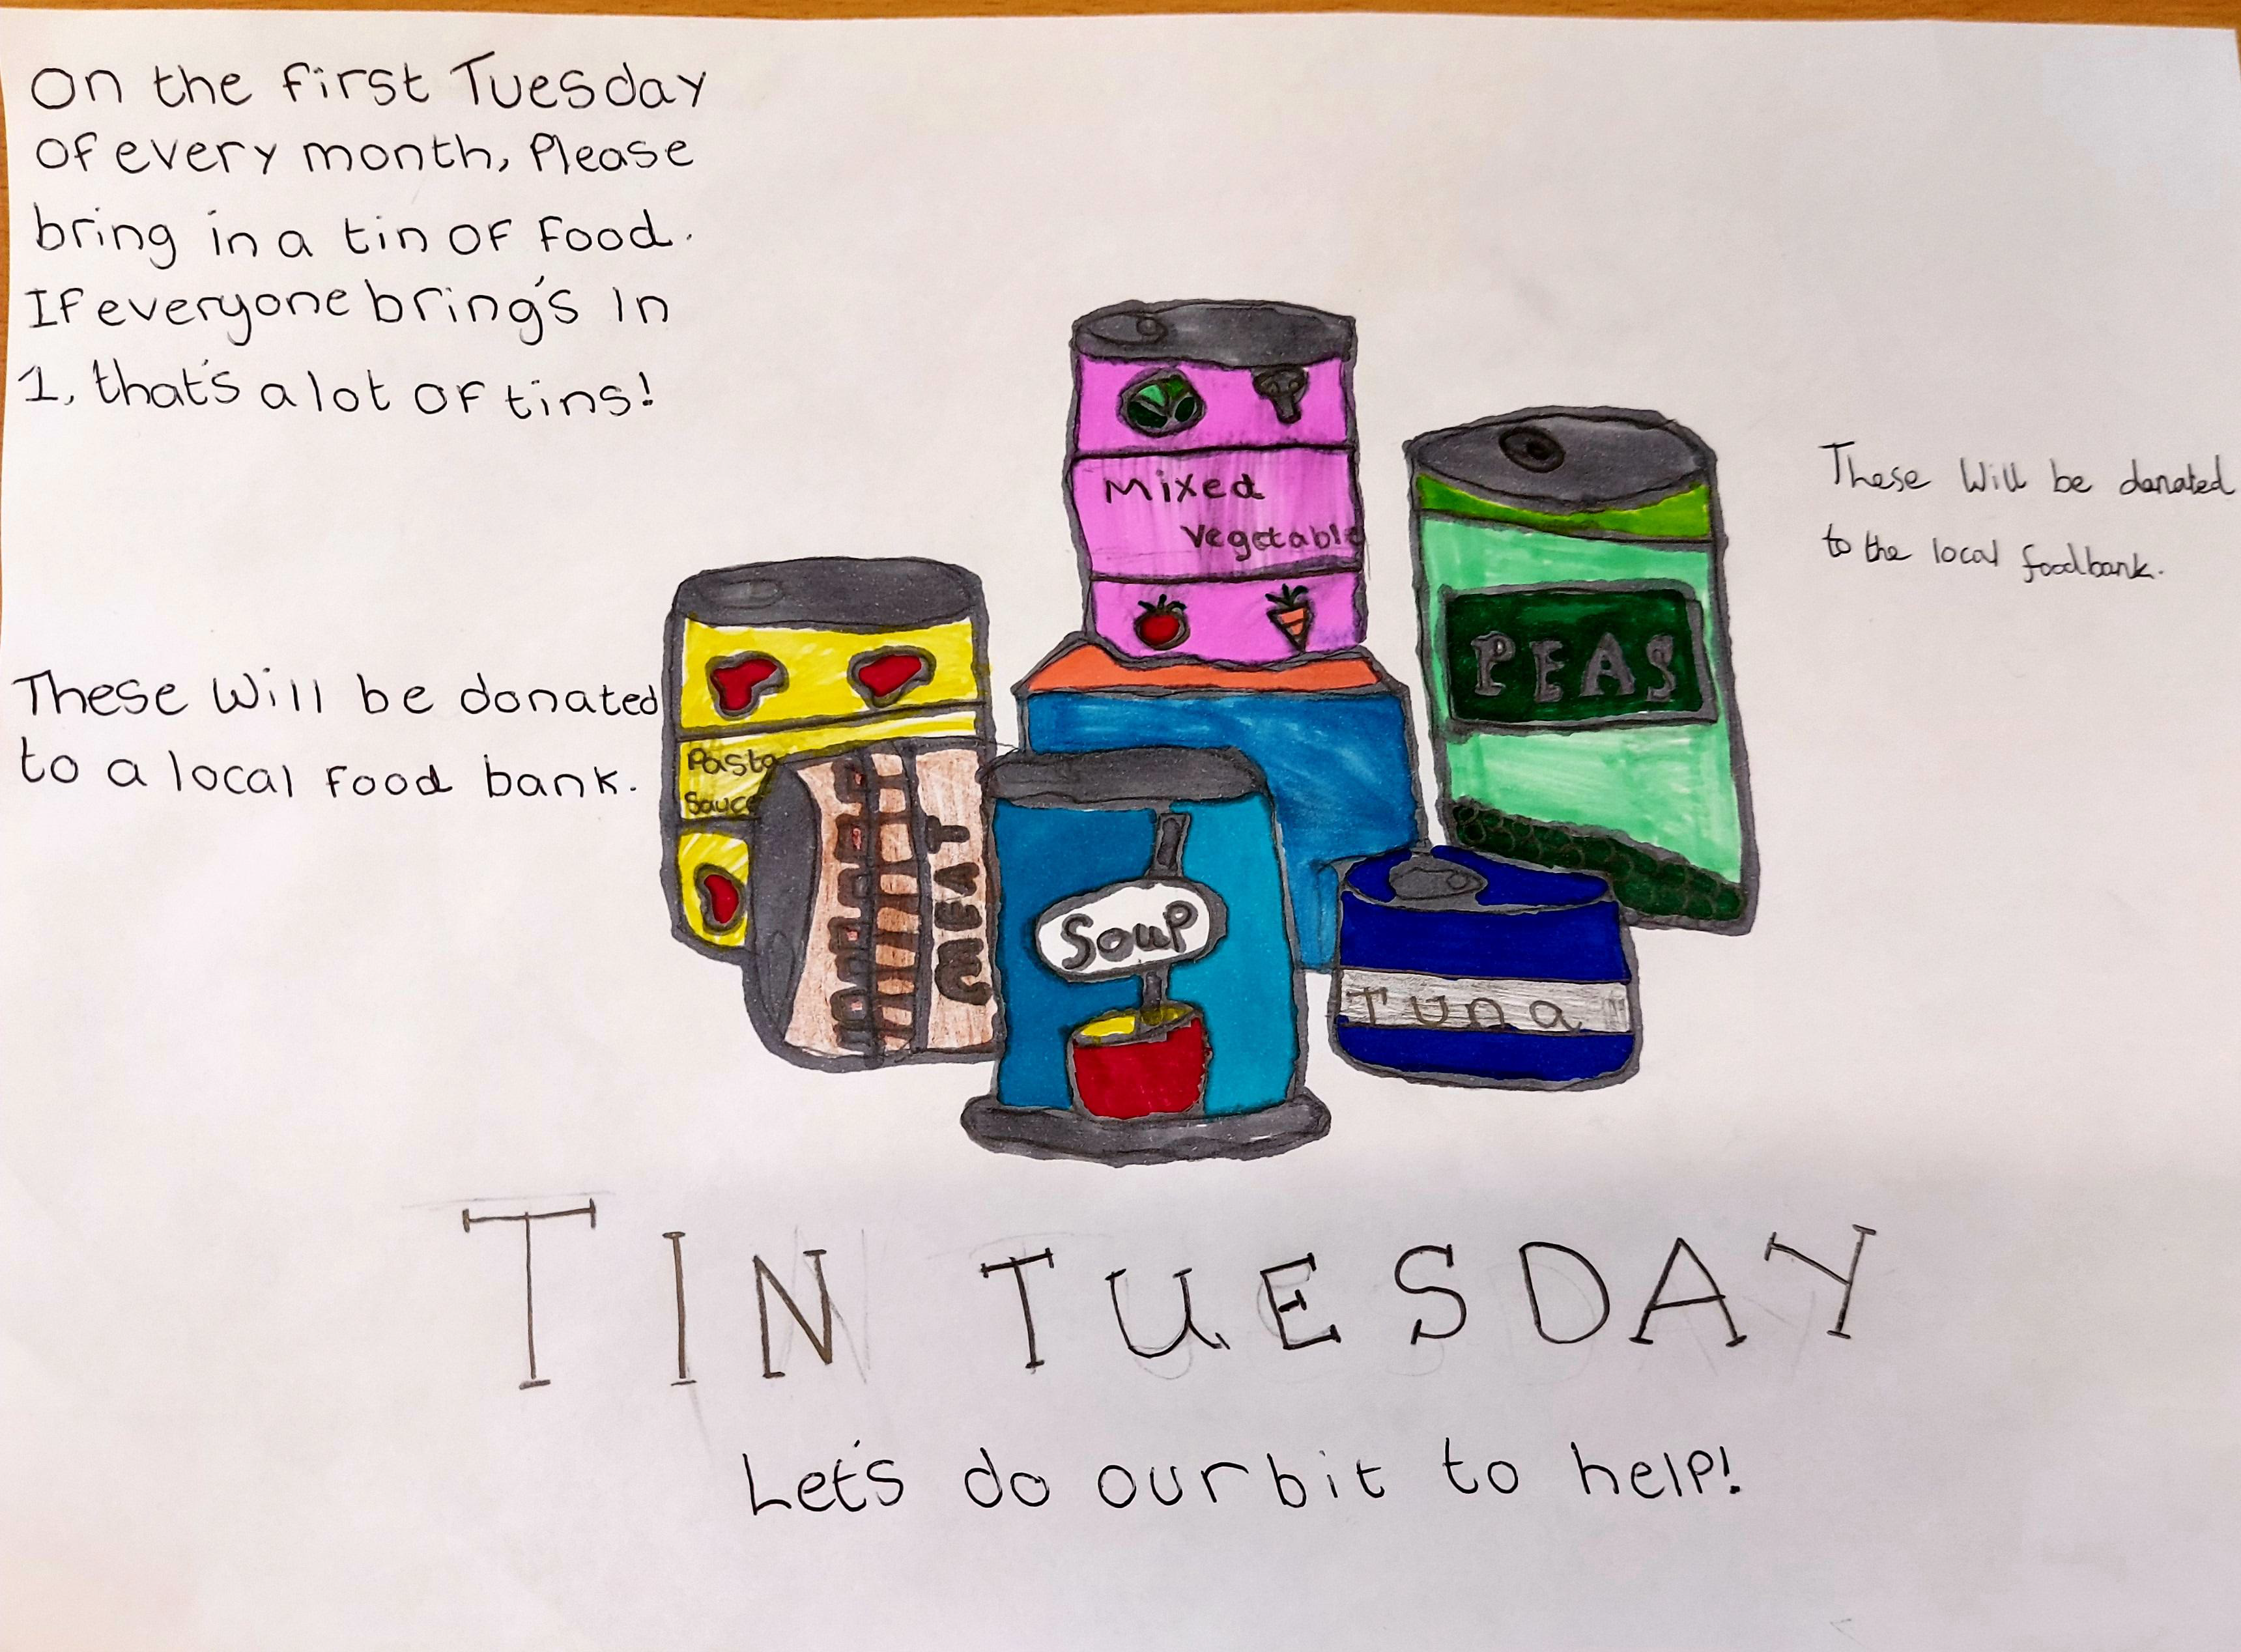 On the first Tuesday
of every month, Please
bring in a tin of food.
If everyone bring's in
1, that's a lot of tins!
These Will be donated
to a local food bank.
Mixed
Vegetable
PEAS
These Will be donated
to the local foodbank.
Pasta
Sauce
MEAT
Soup
Tuna
TIN TUESDAY
Let's do our bit to help!